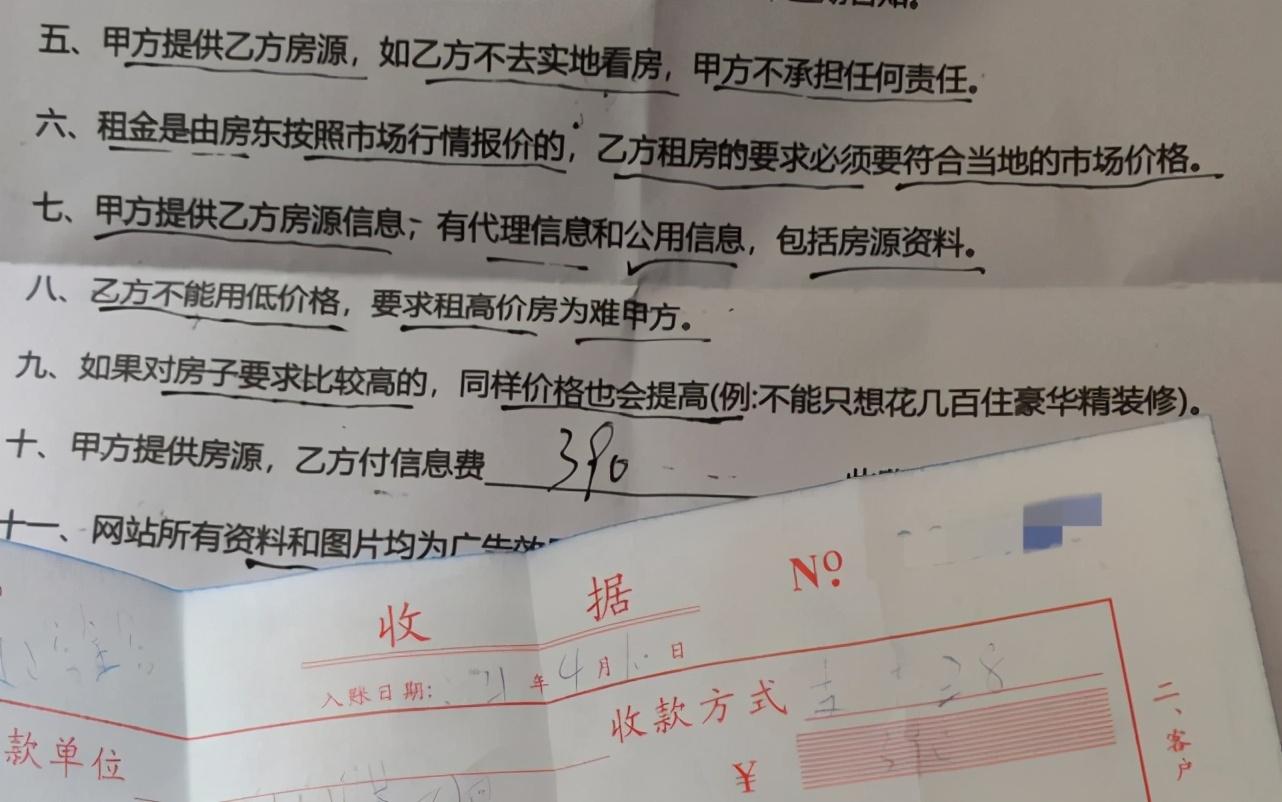 五、甲方提供乙方房源，如乙方不去实地看房，甲方不承担任何责任。
六、租金是由房东按照市场行情报价的，乙方租房的要求必须要符合当地的市场价格。
七、甲方提供乙方房源信息；有代理信息和公用信息，包括房源资料。
八、乙方不能用低价格，要求租高价房为难甲方。
九、如果对房子要求比较高的，同样价格也会提高(例:不能只想花几百住豪华精装修)。
十、甲方提供房源，乙方付信息费 390
十一、网站所有资料和图片均为广告效
收 据 Nº
入账日期： 21年4月 日
收款方式
款单位
¥
二、客户